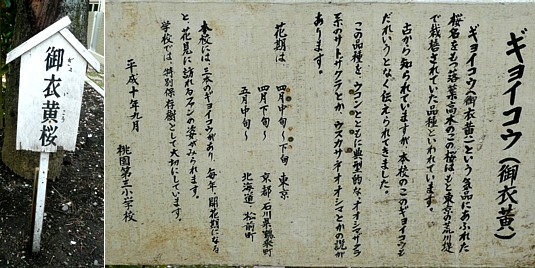 御衣黄桜
ぎょいこう
ギョイコウ(御衣黄)
ギョイコウ(御衣黄)という気品にあふれた
桜名をもつ落葉高木のこの桜はもと東京の荒川堤
で栽培されていた品種といわれています。
古から知られていますが、本校のこのギョイコウも
だれいうとなく伝えられてきました。
この品種を、ウコンとともに典型的な、オオシマザクラ
系のサトザクラとか、ウスカサネオオシマとかの説が
あります。
花期は 四月中旬〜下旬 東京
四月下旬〜 京都・石川県鶴来町
五月中旬〜 北海道・松前町
本校には、三本のギョイコウがあり、毎年、開花期になる
と、花見に訪れるファンの姿がみられます。
学校では、特別保存樹として大切にしています。
平成十年九月
桃園第三小学校